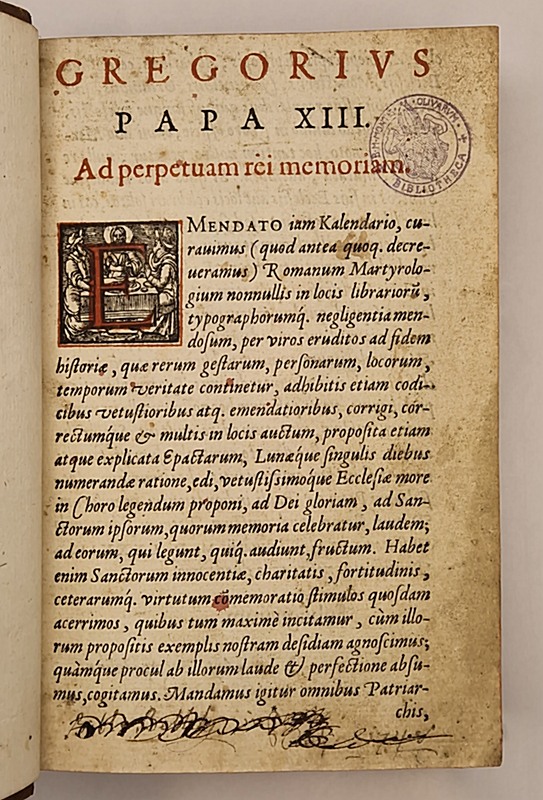 GREGORIVS
PAPA XIII.
Ad perpetuam rei memoriam.
BIBLIOTHECA
EMENDATO iam Kalendario, cu-
rauimus (quod antea quoq. decre-
ueramus) Romanum Martyrolo-
gium nonnullis in locis librariorũ,
typographorumq́. negligentia men-
dosum, per viros eruditos ad fidem
historiæ, quæ rerum gestarum, personarum, locorum,
temporum veritate continetur, adhibitis etiam codi-
cibus vetustioribus atq. emendatioribus, corrigi, cor-
rectumq́ue & multis in locis auctum, proposita etiam
atque explicata Epactarum, Lunæque singulis diebus
numerandæ ratione, edi, vetustissimoq́ue Ecclesiæ more
in Choro legendum proponi, ad Dei gloriam, ad San-
ctorum ipsorum, quorum memoria celebratur, laudem;
ad eorum, qui legunt, quiq́. audiunt, fructum. Habet
enim Sanctorum innocentiæ, charitatis, fortitudinis,
ceterarumq́. virtutum cõmemoratio stimulos quosdam
acerrimos, quibus tum maximè incitamur, cùm illo-
rum propositis exemplis nostram desidiam agnoscimus;
quàmque procul ab illorum laude & perfectione absu-
mus, cogitamus. Mandamus igitur omnibus Patriar-
chis,